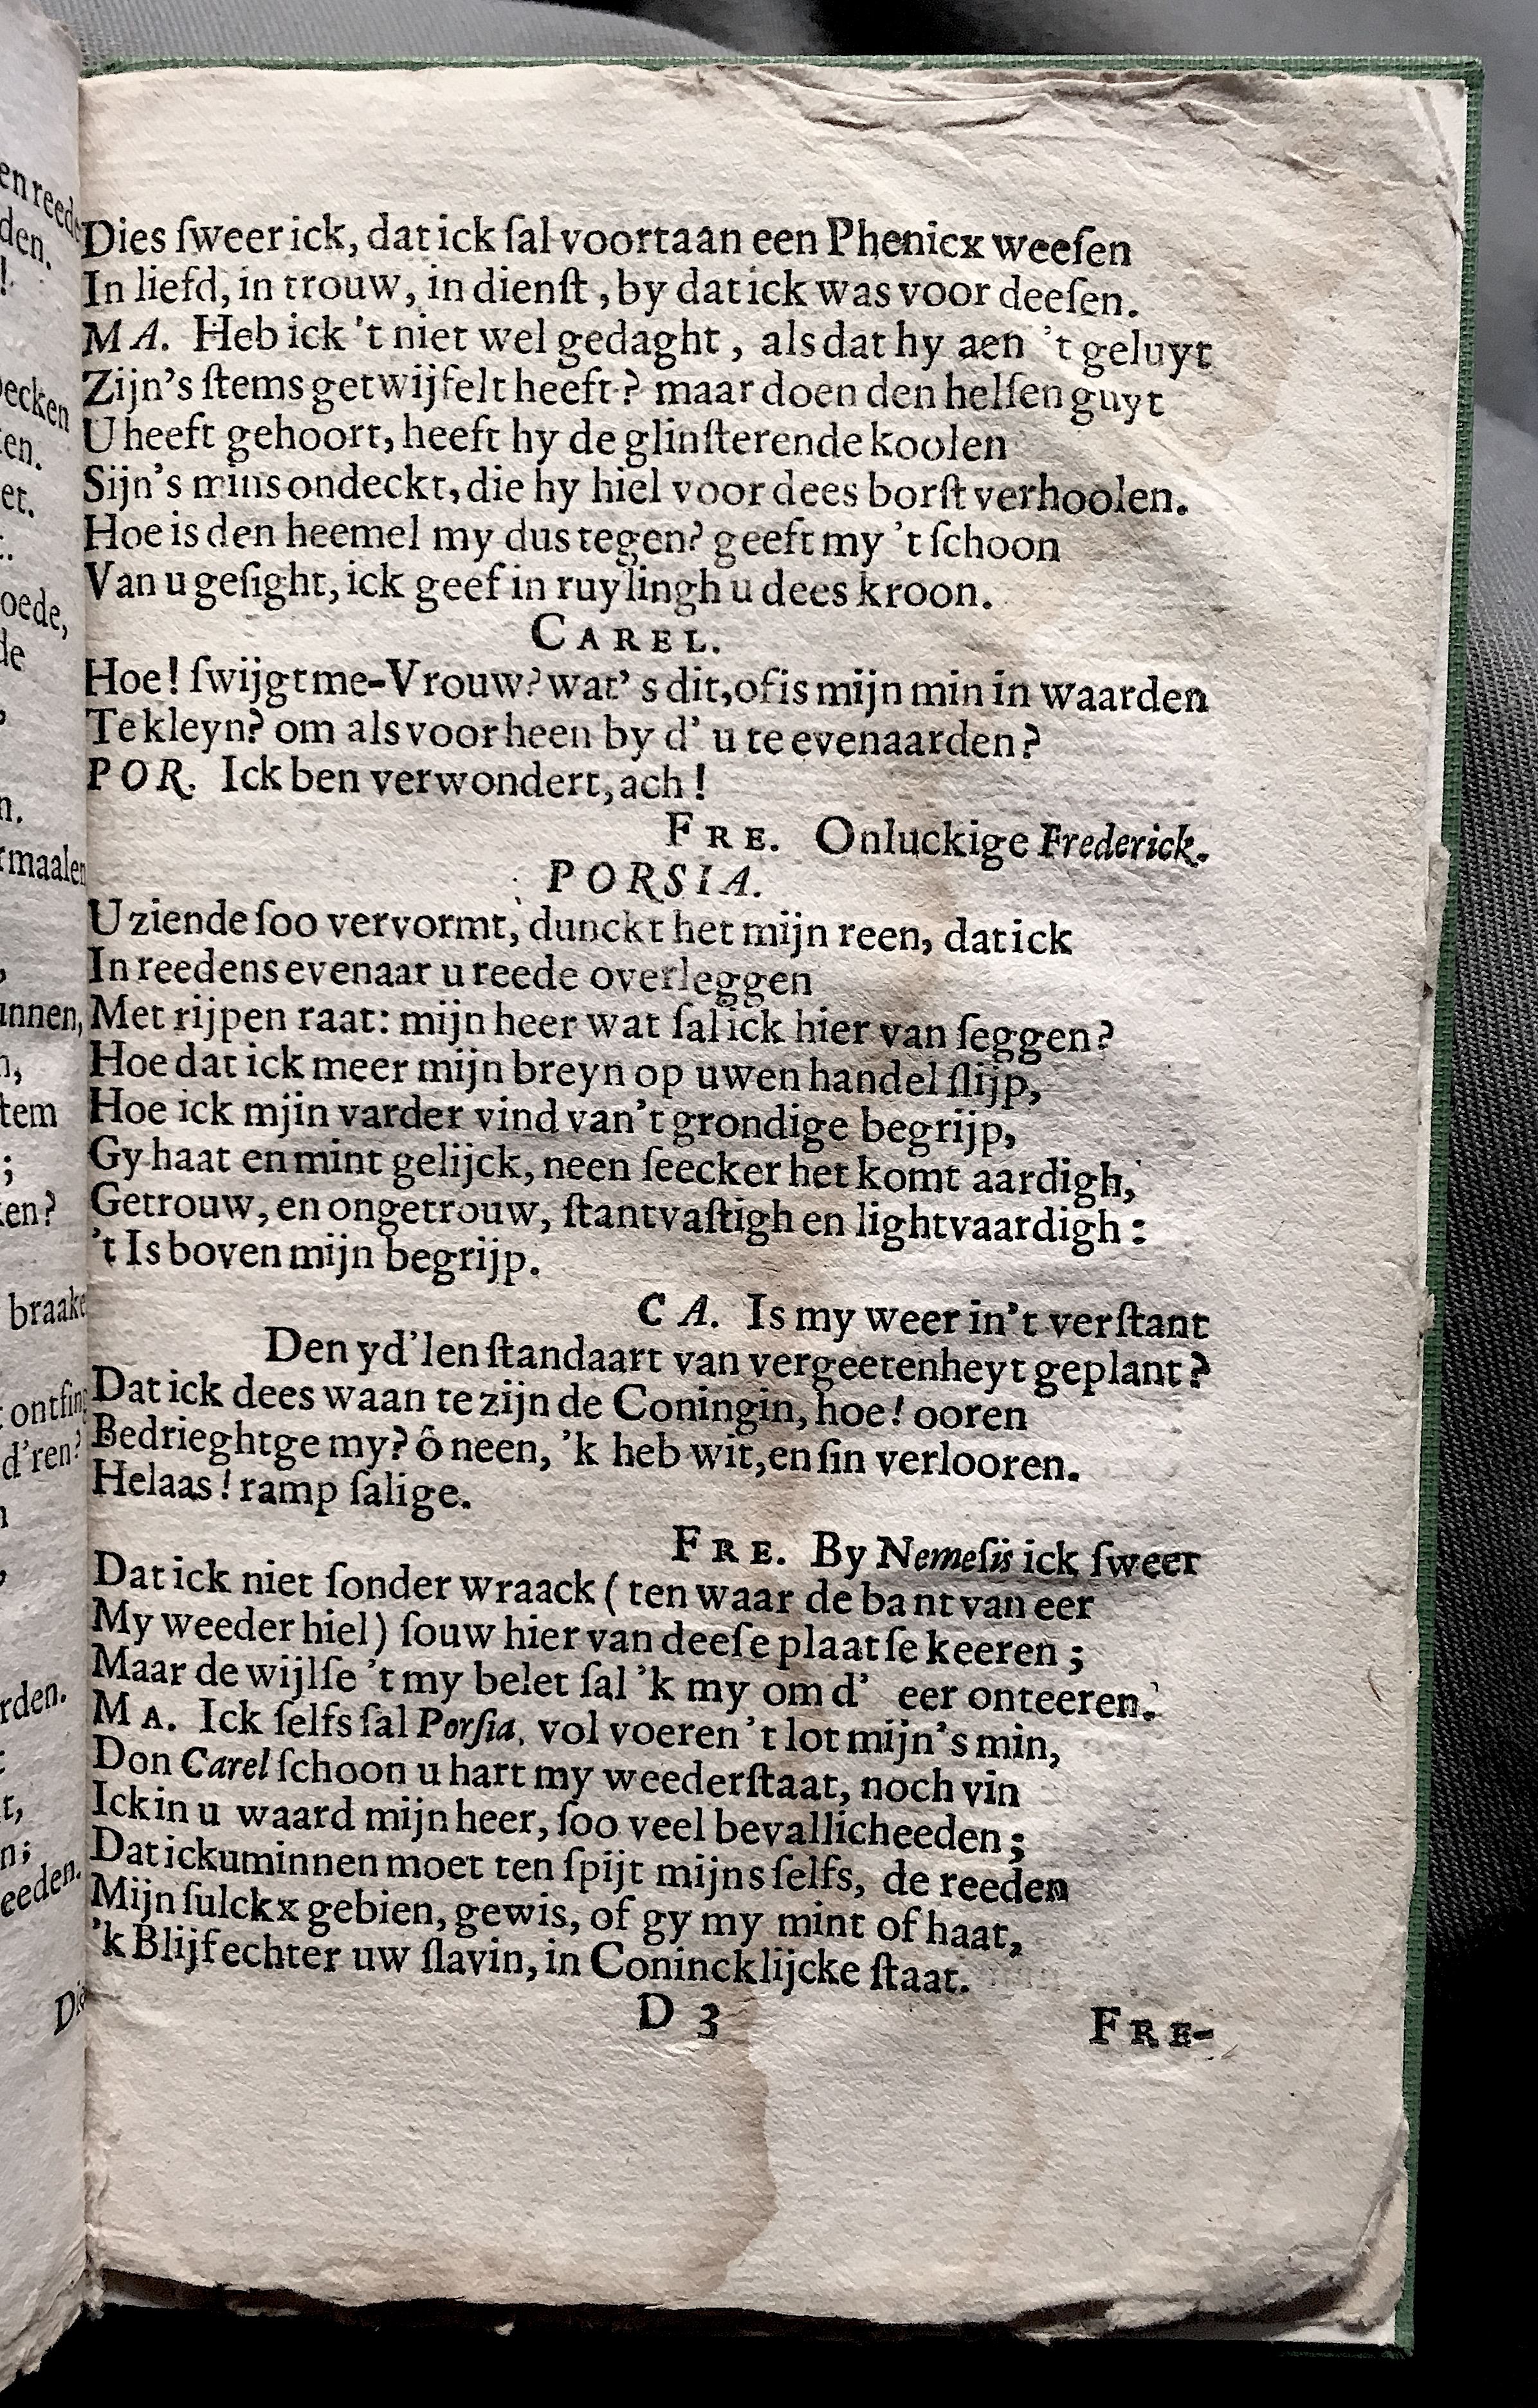 Dies ſweer ick, dat ick ſal voortaan een Phenicx weeſen
In liefd, in trouw, in dienſt, by dat ick was voor deeſen.
MA. Heb ick 't niet wel gedaght, als dat hy aen 't geluyt
Zijn's ſtems getwijfelt heeft? maar doen den helſen guyt
U heeft gehoort, heeft hy de glinſterende koolen
Sijn's mins ondeckt, die hy hiel voor dees borſt verhoolen.
Hoe is den heemel my dus tegen? geeft my 't ſchoon
Van u geſight, ick geef in ruylingh u dees kroon.
CAREL.
Hoe! ſwijgt me-Vrouw? wat's dit, of is mijn min in waarden
Te kleyn? om als voorheen by d'u te evenaarden?
POR. Ick ben verwondert, ach!
FRE. Onluckige Frederick.
PORSIA.
U ziende ſoo vervormt, dunckt het mijn reen, dat ick
In reedens evenaar u reede overleggen
Met rijpen raat: mijn heer wat ſal ick hier van ſeggen?
Hoe dat ick meer mijn breyn op uwen handel ſlijp,
Hoe ick mjin varder vind van't grondige begrijp,
Gy haat en mint gelijck, neen ſeecker het komt aardigh,
Getrouw, en ongetrouw, ſtantvaſtigh en lightvaardigh:
't Is boven mijn begrijp.
CA. Is my weer in't verſtant
Den yd'len ſtandaart van vergeetenheyt geplant?
Dat ick dees waan te zijn de Coningin, hoe! ooren
Bedrieghtge my? ô neen, 'k heb wit, en ſin verlooren.
Helaas! ramp ſalige.
FRE. By Nemeſis ick ſweer
Dat ick niet ſonder wraack (ten waar de bant van eer
My weeder hiel) ſouw hier van deeſe plaatſe keeren;
Maar de wijlſe 't my belet ſal 'k my om d' eer onteeren.
MA. Ick ſelfs ſal Porſia, vol voeren 't lot mijn's min,
Don Carel ſchoon u hart my weederſtaat, noch vin
Ick in u waard mijn heer, ſoo veel bevallicheeden;
Dat ick u minnen moet ten ſpijt mijns ſelfs, de reeden
Mijn ſulckx gebien, gewis, of gy my mint of haat,
'k Blijf echter uw ſlavin, in Conincklijcke ſtaat.
D 3
FRE-